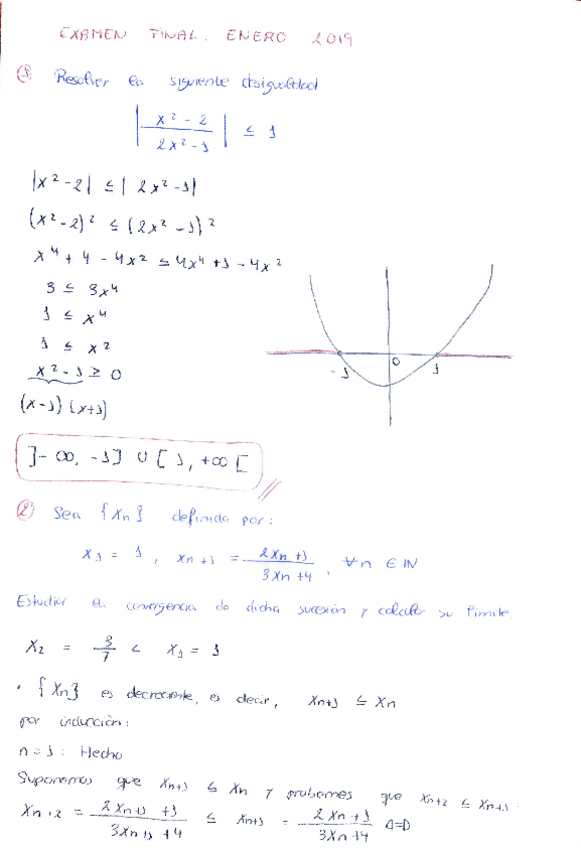 EXAMEN FINAL. ENERO 2019
① Resolver la siguiente desigualdad
| x² - 2 / 2x² - 1 | ≤ 1
|x² - 2| ≤ | 2x² - 1|
(x² - 2)² ≤ (2x² - 1)²
x⁴ + 4 - 4x² ≤ 4x⁴ + 1 - 4x²
3 ≤ 3x⁴
1 ≤ x⁴
1 ≤ x²
x² - 1 ≥ 0
(x-1) (x+1)
-1 0 1
]-∞, -1] ∪ [1, +∞[
② Sea {Xn} definida por:
x₁ = 1, xn+1 = 2xn + 1 / 3xn + 4, ∀n ∈ ℕ
Estudiar la convergencia de dicha sucesión y calcular su límite.
X₂ = 3/7 < X₁ = 1
· {Xn} es decreciente, es decir, Xn+1 ≤ Xn
por inducción:
n = 1: Hecho
Suponemos que Xn+1 ≤ Xn y probemos que Xn+2 ≤ Xn+1:
Xn+2 = 2Xn+1 + 1 / 3Xn+1 + 4 ≤ Xn+1 = 2Xn + 1 / 3Xn + 4 ⇔